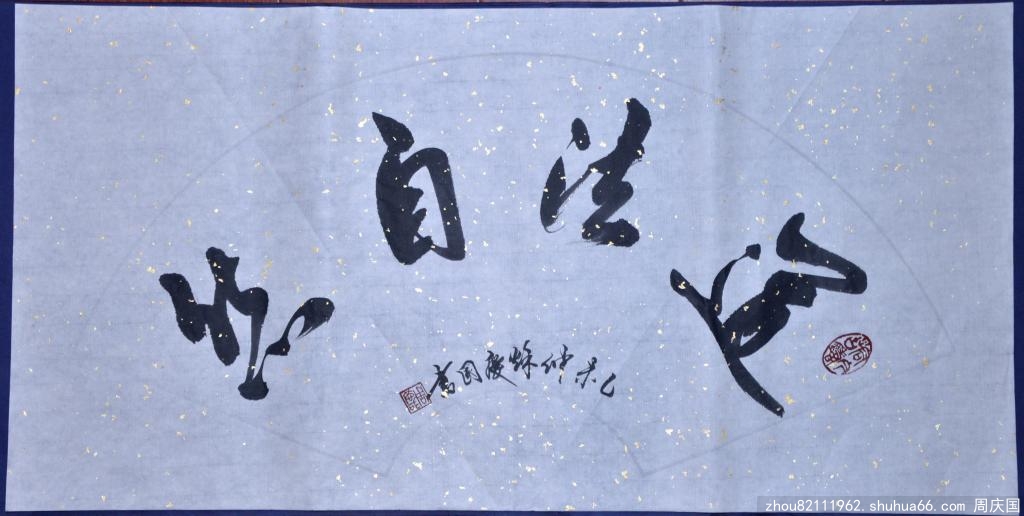 道法自然
乙未仲秋慶国書
zhou82111962. shuhua66. com 周庆国